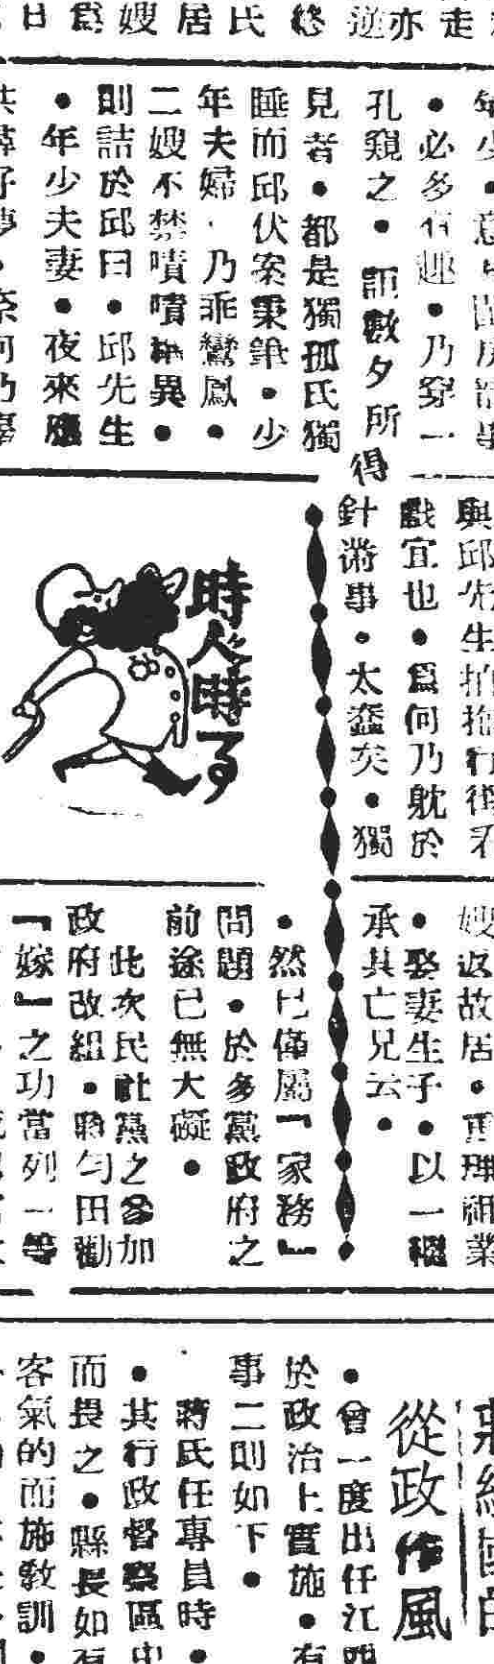 走
亦
逆
氏
居
嫂
爲
日
年少●意
●必多有趣●乃穿一
孔窺之●詎數夕所得
見者●都是獨孤氏獨
睡而邱伏案秉筆●少
年夫婦●乃乖鸞鳳●
二嫂不禁嘖嘖稱異●
則詰於邱曰●邱先生
●年少夫妻●夜來應
與邱先生拍拖行街看
戲宜也●爲何乃躭於
針黹事●太蠢矣●獨
時人時事
嫂返故居●重理祖業
●娶妻生子●以一繼
承其亡兄云●
●然已僅屬『家務』
問題●於多黨政府之
前途已無大礙●
此次民社黨之參加
政府改組●勻田勸
『嫁』之功當列一等
蔣經國的
從政作風
●曾一度出任江西
於政治上實施●有
事二則如下●
蔣氏任專員時●
●其行政督察區中
而畏之●縣長如有
客氣的而施教訓●